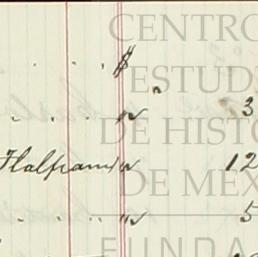 CENTRO
$
ESTUD
" 3
DE HISTO
" 12
DE MÉX
" 5
FUNDA